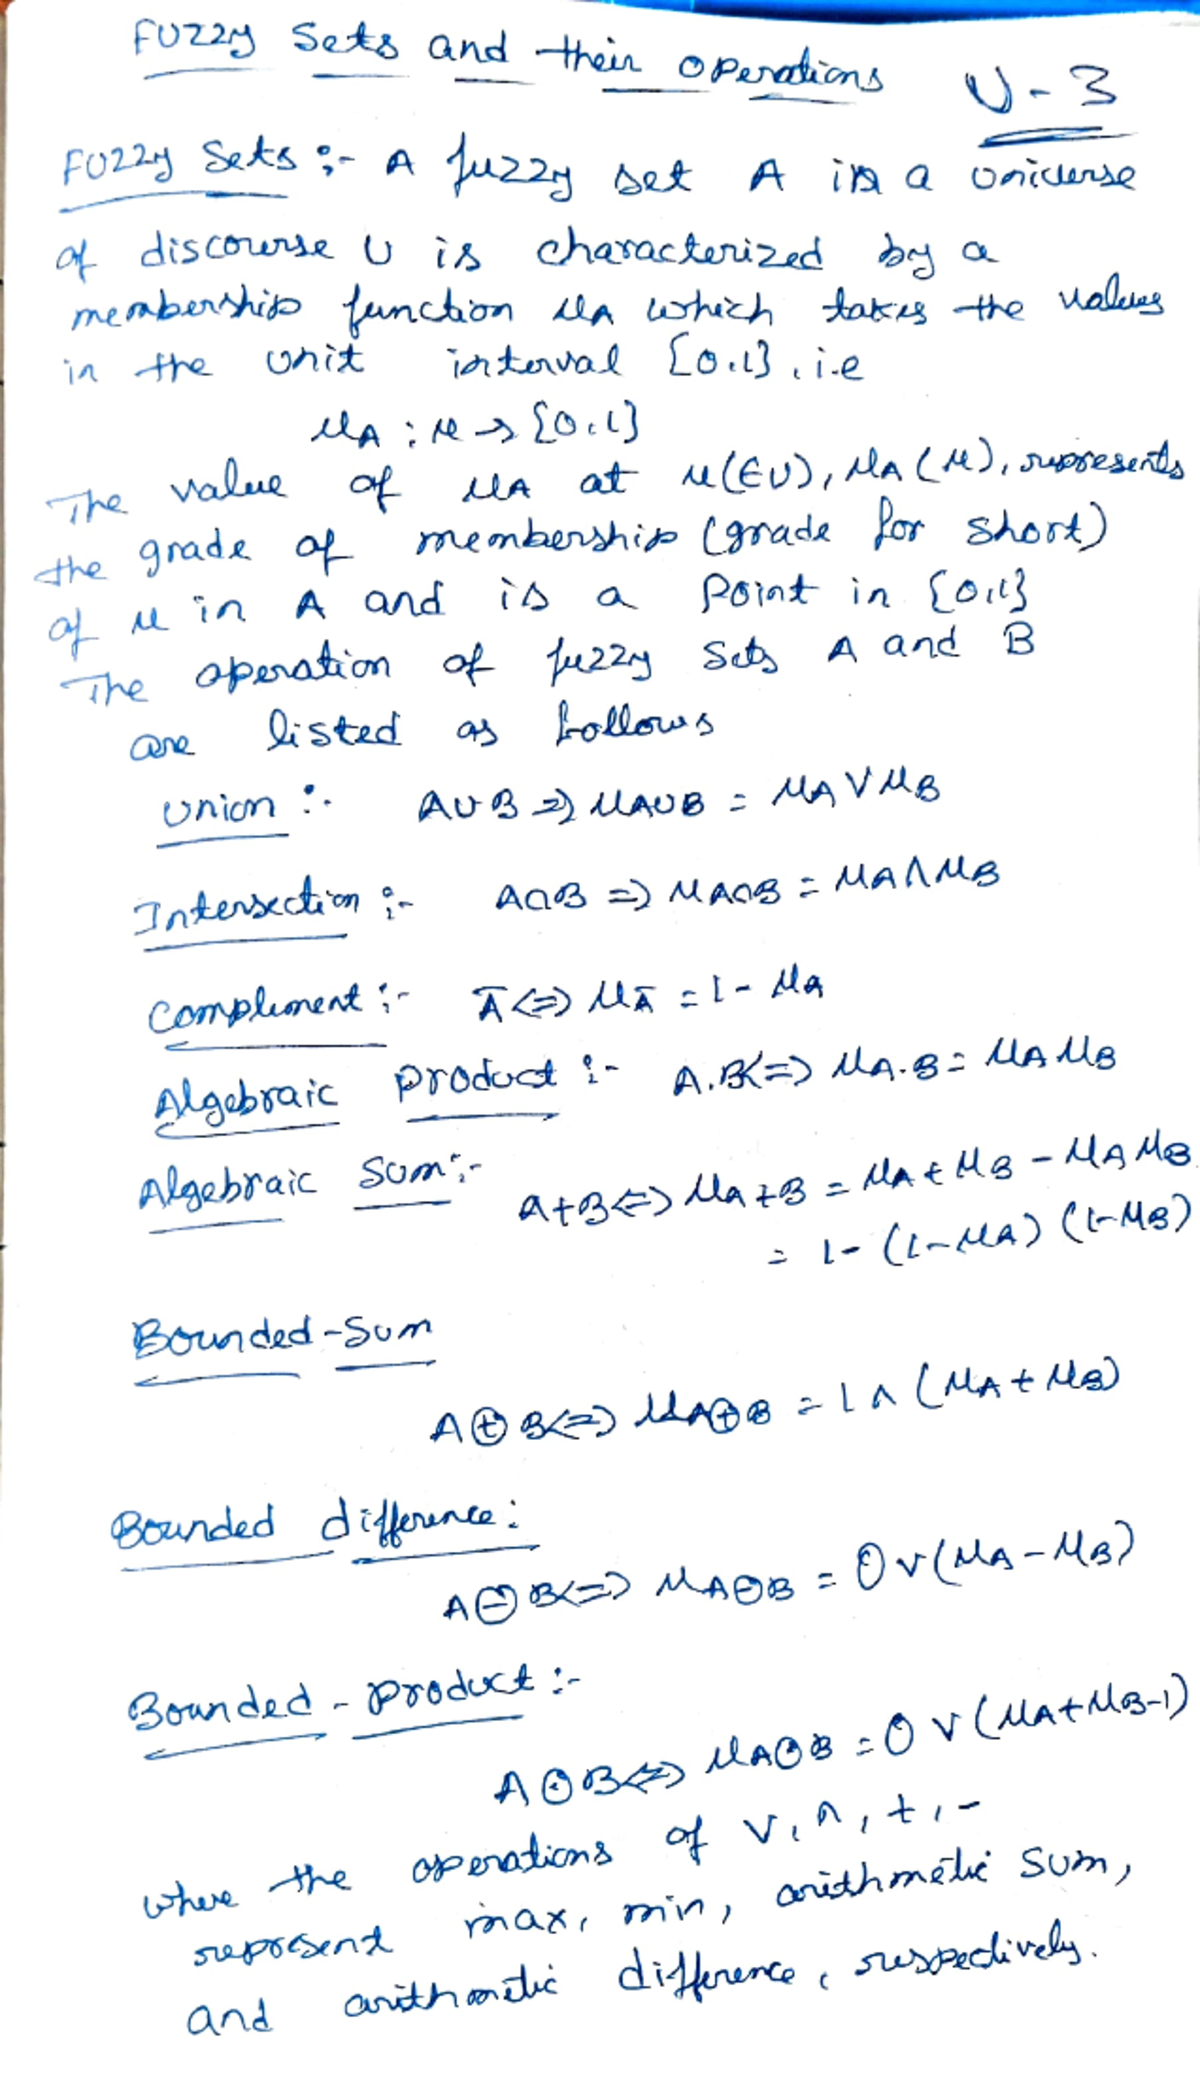 Fuzzy Sets and their operations
U-3
Fuzzy Sets :- A fuzzy set A in a universe
of discourse U is characterized by a
membership function μA which takes the values
in the unit interval {0,1}, i.e
μA : μ → {0,1}
The value of μA at μ(∈U), μA(μ), represents
the grade of membership (grade for short)
of μ in A and is a Point in {0,1}
The operation of fuzzy sets A and B
are listed as follows
Union :- A∪B ⇒ μA∪B = μA ∨ μB
Intersection :- A∩B ⇒ μA∩B = μA ∧ μB
Compliment :- Ā ⇔ μĀ = 1 - μA
Algebraic product :- A.B ⇔ μA.B = μA μB
Algebraic Sum :- A+B ⇔ μA+B = μA + μB - μA μB
= 1 - (1-μA) (1-μB)
Bounded-Sum
A⊕B ⇔ μA⊕B = 1 ∧ (μA + μB)
Bounded difference:
A⊖B ⇔ μA⊖B = 0 ∨ (μA - μB)
Bounded - product :-
A⊙B ⇔ μA⊙B = 0 ∨ (μA + μB - 1)
where the operations of ∨, ∧, +, -
represent max, min, arithmetic sum,
and arithmetic difference, respectively.